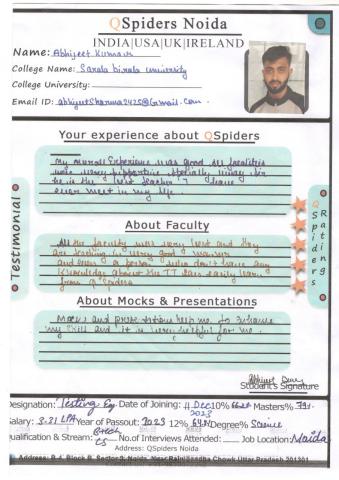 QSpiders Noida
INDIA|USA|UK|IRELAND
Name: Abhijeet Kumar
College Name: Sarala birala university
College University:
Email ID: abhijeetsharma2425@Gmail.com.
Your experience about QSpiders
My overall Experience was Good all faculties
were very supportive specially sir
he is the best teacher I have
ever meet in my life.
About Faculty
All the faculty was very best and they
are teaching in very good manner
and even a person who don't have any
knowledge about the IT can easily learn
from Q spiders
About Mocks & Presentations
Mocks and presentations help me to Enhance
my skill and it is very helpful for me.
Testimonial
QSpiders
Rating
Student's Signature
Designation: Testing Eng. Date of Joining: 11 Dec 2023 10% Masters%
Salary: 3.31 LPA Year of Passout: 2023 12% Degree% Science
Qualification & Stream: Btech CS No.of Interviews Attended: Job Location: Noida
Address: QSpiders Noida
Address: B 4, Block B, Sector 3, Noida, Near Rajnigandha Chowk Uttar Pradesh 201301